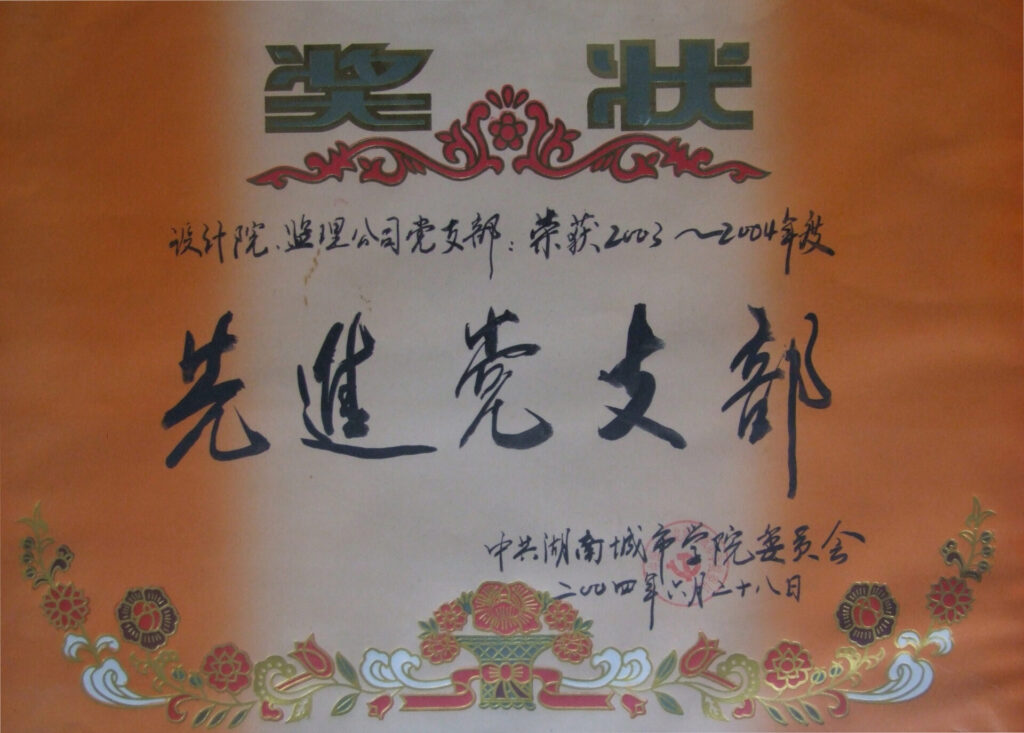 奖状
设计院、监理公司党支部：荣获2003～2004年度
先進党支部
中共湖南城市学院委员会
二00四年六月二十八日